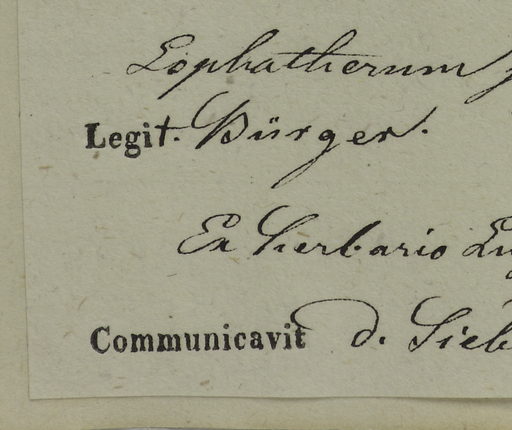 Lophatherum
Legit. Bürger.
Ex herbario
Communicavit d. Sieb